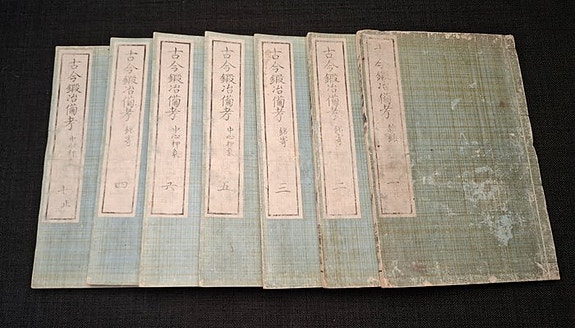 古今鍛冶備考 一
古今鍛冶備考 銘寄 二
古今鍛冶備考 銘寄 三
古今鍛冶備考 中心押象 五
古今鍛冶備考 中心押象 六
古今鍛冶備考 銘寄 四
古今鍛冶備考 中心押象 七止